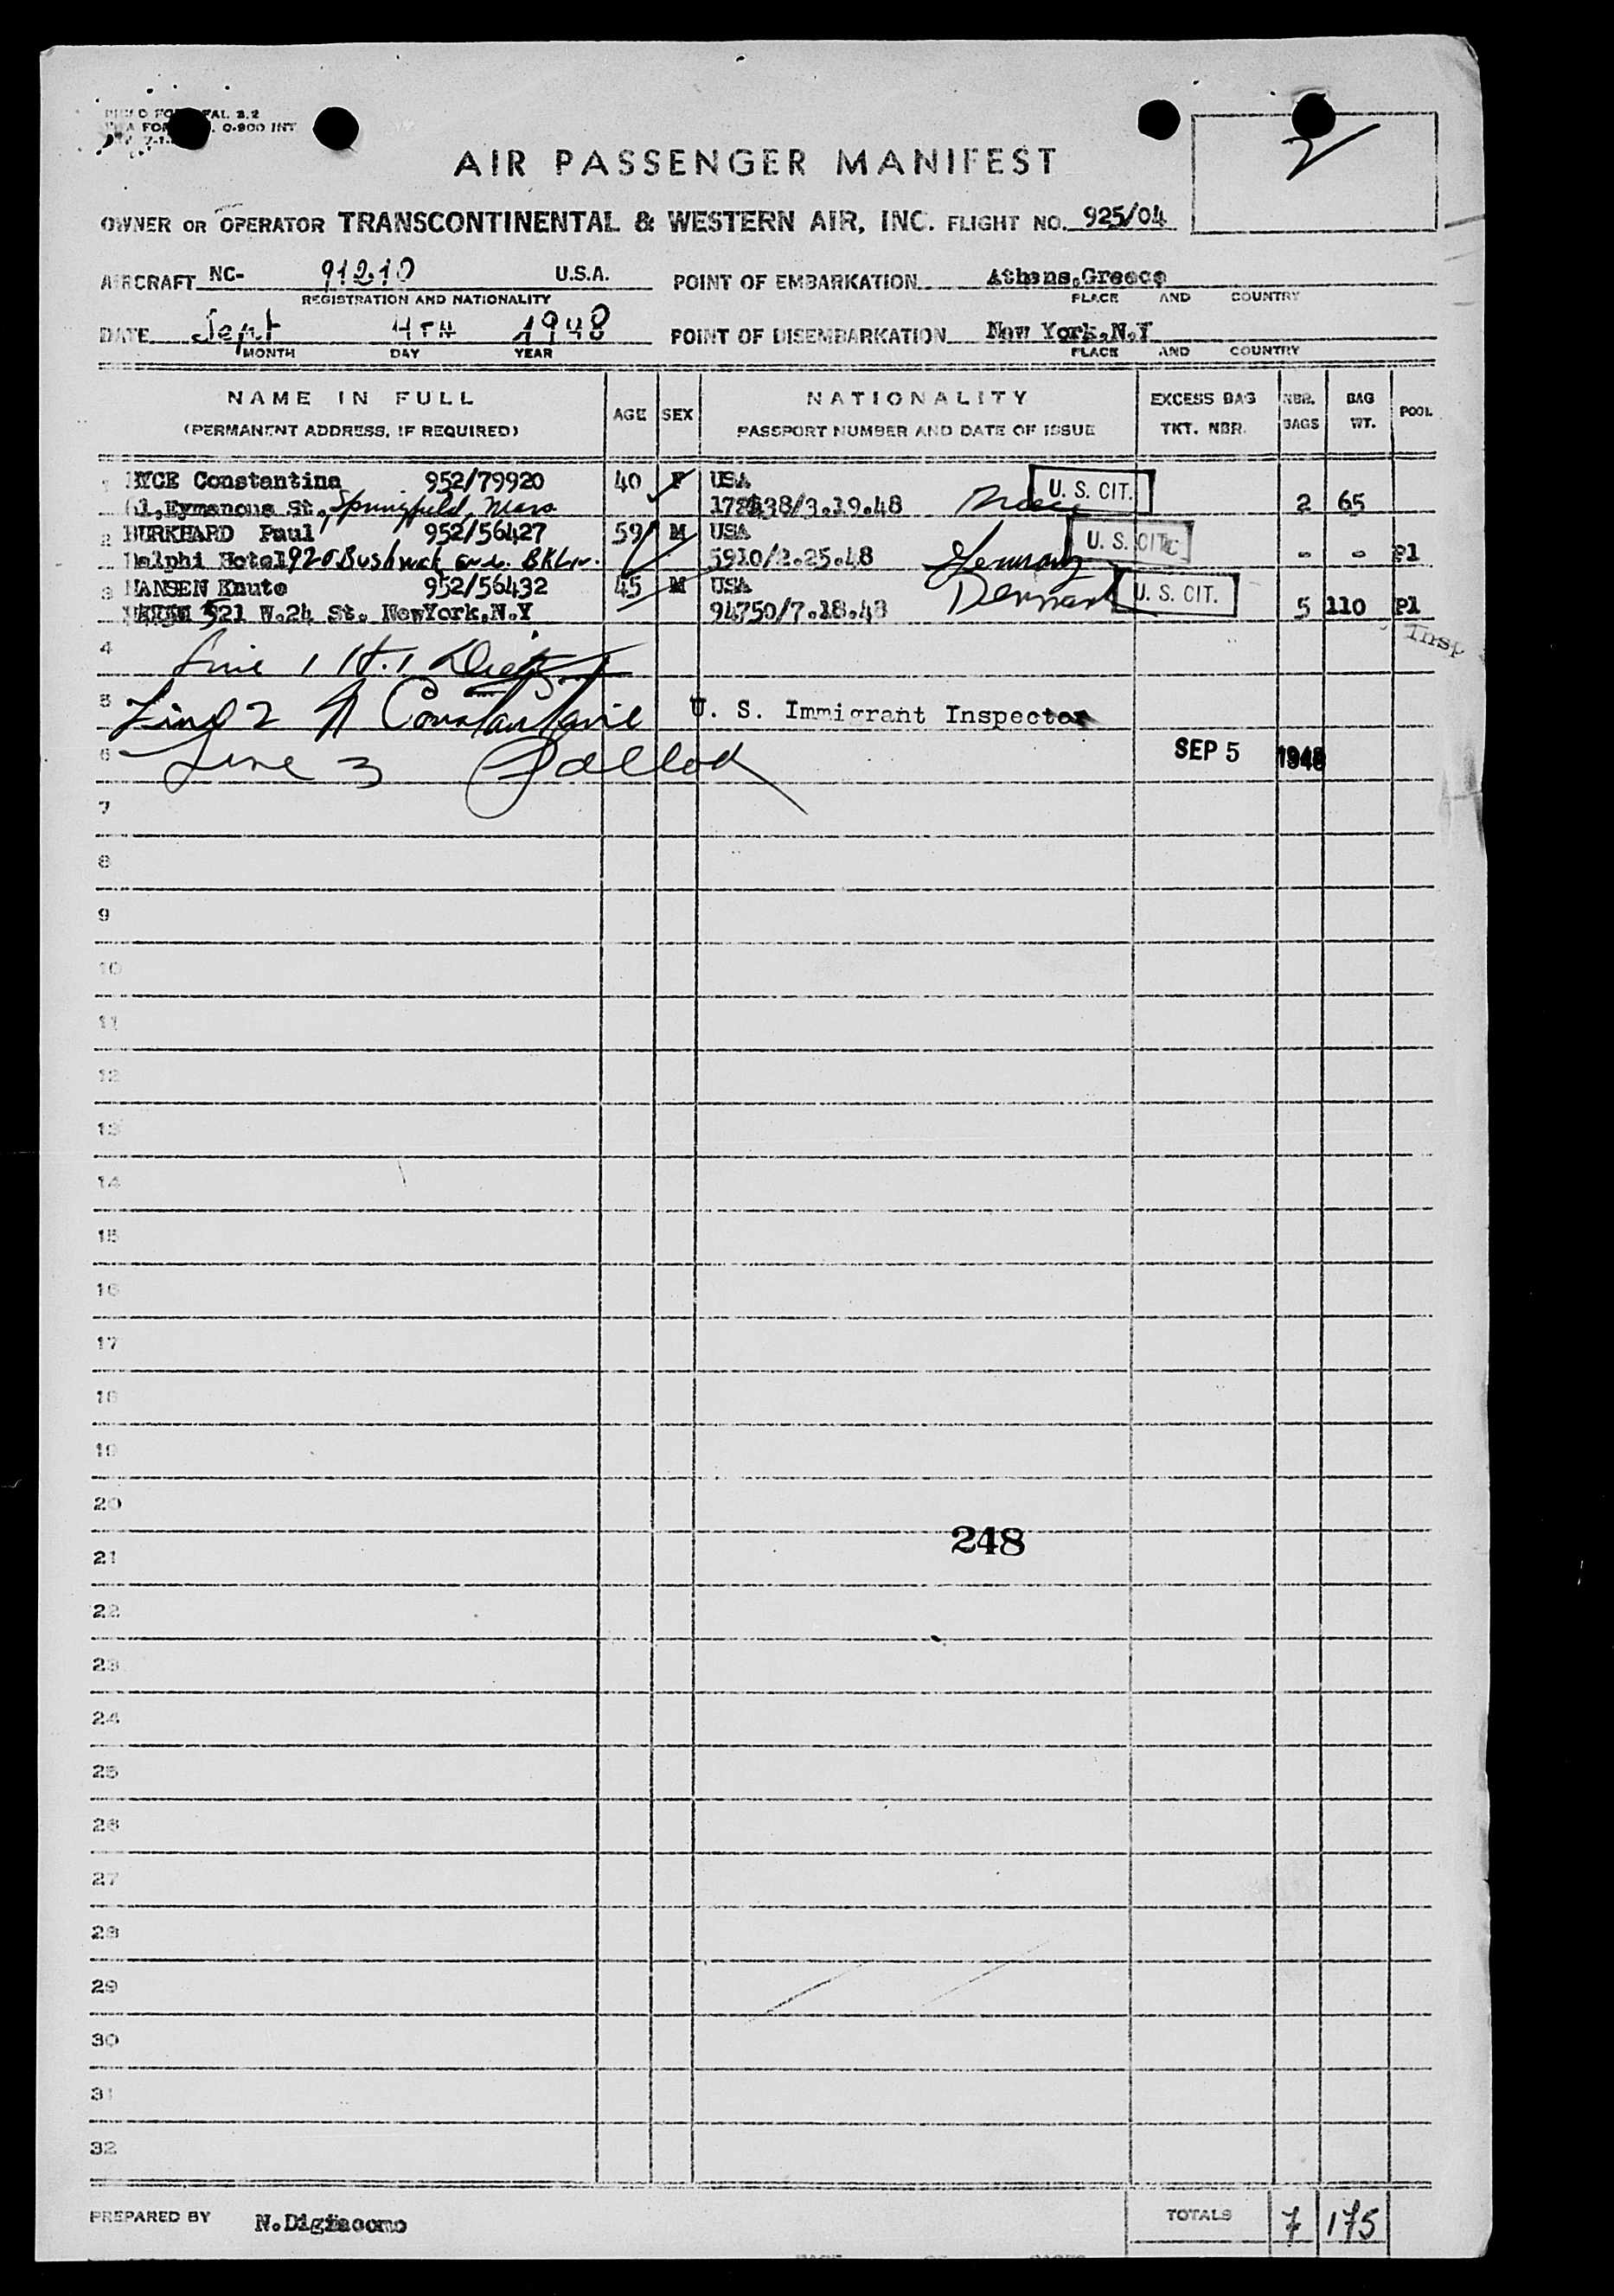 2
AIR PASSENGER MANIFEST
OWNER OR OPERATOR TRANSCONTINENTAL & WESTERN AIR, INC. FLIGHT NO. 925/04
AIRCRAFT NC- 91210 U.S.A. POINT OF EMBARKATION Athens,Greece
REGISTRATION AND NATIONALITY PLACE AND COUNTRY
DATE Sept 4TH 1948 POINT OF DISEMBARKATION New York,N.Y
MONTH DAY YEAR PLACE AND COUNTRY
NAME IN FULL AGE SEX NATIONALITY EXCESS BAG NBR. BAG POOL
(PERMANENT ADDRESS, IF REQUIRED) PASSPORT NUMBER AND DATE OF ISSUE TKT. NBR. BAGS WT.
1 Constantina 952/79920 40 F USA U. S. CIT.
St, Springfield, Mass 2 65
2 BURKHARD Paul 952/56427 59 M USA U. S. CIT.
Hotel 920 Bushwick Ave. BKLN. 5910/2.25.48 Germany - - Pl
3 HANSEN Knute 952/56432 45 M USA Denmark U. S. CIT.
521 W.24 St. NewYork,N.Y 94750/7.18.48 5 110 Pl
Insp
4 Line 1
5 Line 2 U. S. Immigrant Inspector
6 Line 3 SEP 5 1948
7
8
9
10
11
12
13
14
15
16
17
18
19
20
248
21
22
23
24
25
26
27
28
29
30
31
32
PREPARED BY N.Digiacomo TOTALS 7 175